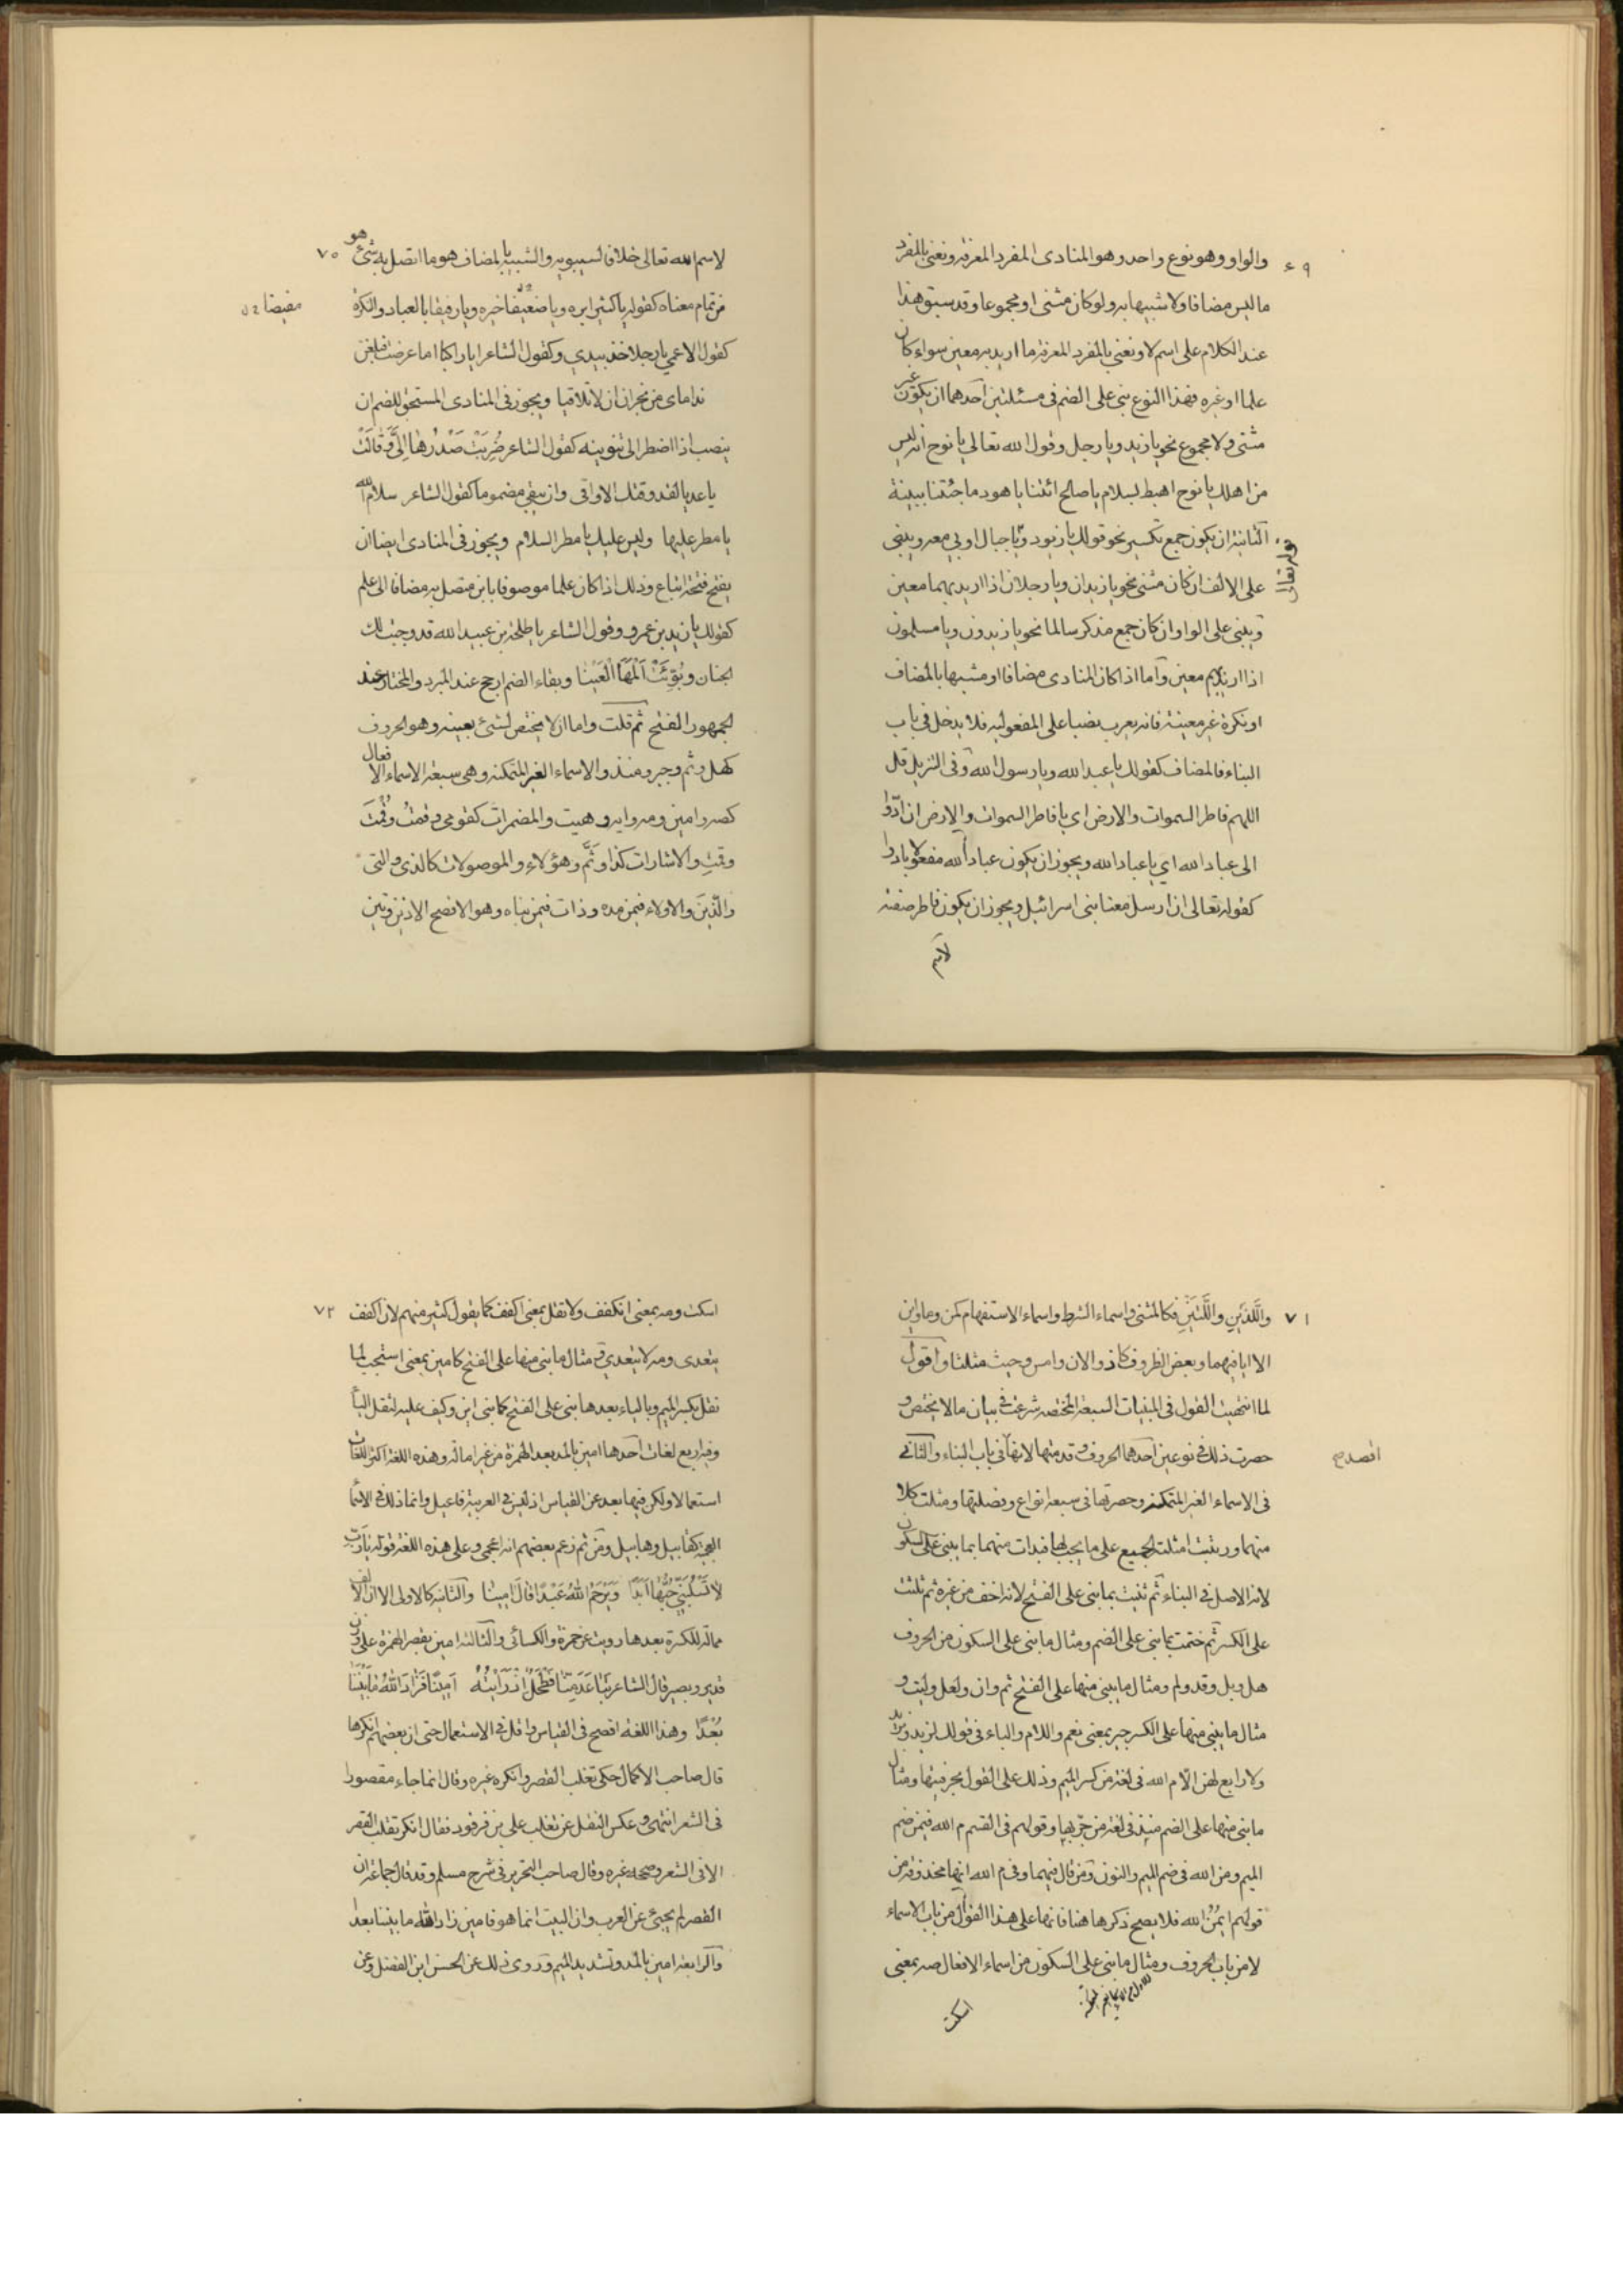 ٦٩
والواو وهو نوع واحد وهو المنادى المفرد المعرفة ونعنى بالمفرد
ما ليس مضافا ولا شبيها به ولو كان مثنى او مجموعا وقد سبق هذا
عند الكلام على اسم لا ونعنى بالمفرد المعرفة ما اريد به معين سواء كان
علما او غيره فهذا النوع يبنى على الضم فى مسئلتين احدهما ان يكون غير
مثنى ولا مجموع نحو يا زيد ويا رجل وقول الله تعالى يا نوح انه ليس
من اهلك يا نوح اهبط بسلام يا صالح ائتنا يا هود ما جئتنا ببينة
الثانية ان يكون جمع تكسير نحو قولك يا زيود ويا جبال اوبى معه ويبنى
قوله تعالى
على الالف ان كان مثنى نحو يا زيدان ويا رجلان اذا اريد بهما معين
ويبنى على الواو ان كان جمع مذكر سالما نحو يا زيدون ويا مسلمون
اذا اريد بهم معين واما اذا كان المنادى مضافا او مشبها بالمضاف
او نكرة غير معينة فانه يعرب نصبا على المفعولية فلا يدخل فى باب
البناء فالمضاف كقولك يا عبد الله ويا رسول الله وفى التنزيل قل
اللهم فاطر السموات والارض اى يا فاطر السموات والارض ان ادّوا
الى عباد الله اي يا عباد الله ويجوز ان يكون عباد الله مفعولا بادوا
كقوله تعالى ان ارسل معنا بنى اسرائيل ويجوز ان يكون فاطر صفة
لاسم
٧٠
لاسم الله تعالى خلافا لسيبويه والشبيه بالمضاف هو ما اتصل به شئ هو
من تمام معناه كقوله يا كثيرا بره ويا ضعيفا خيره ويا رفيقا بالعباد والنكرة
كقول الاعمي يا رجلا خذ بيدي وكقول الشاعر ايا راكبا اما عرضت فبلغن
نداماى من نجران ان لا تلاقيا ويجوز فى المنادى المستحق للضم ان
ينصب اذا اضطر الى تنوينه كقول الشاعر ضُرِبَتْ صَدْرُهَا اِلىَّ وَقَالَتْ
يا عديا لقد وقتك الاواقى وان يبقى مضموما كقول الشاعر سلام الله
يا مطر عليها وليس عليك يا مطر السلام ويجوز فى المنادى ايضا ان
يفتح فتحة اتباع وذلك اذا كان علما موصوفا بابن متصل به مضافا الى علم
كقولك يا زيد بن عمرو وقول الشاعر يا طلحة بن عبيد الله قد وجبت لك
الجنان وبُوِّئْتَ الْمَهَا الْعَيْنَا وبقاء الضم ارجح عند المبرد والمختار عند
الجمهور الفتح ثم قلت واما ان لا يختص بشئ بعينه وهو الحروف
كهل وثم وجير ومنذ والاسماء الغير المتمكنة وهى سبعة الاسماء الافعال
كصه وامين ومه وايه وهيت والمضمرات كقومى وقمتُ وقُمْتَ
وقمتِ والاشارات كذا وثَمَّ وهؤلاءِ والموصولات كالذى والتى
والَّذينَ والاولاء فيمن مده وذات فيمن بناه وهو الافصح الا ذين وتين
٧١
واللَّذَيْنِ واللَّتَيْنِ فكالمثنى واسماء الشرط واسماء الاستفهام كمن وما واين
الا ايا فيهما وبعض الظروف كاذ والان وامس وحيث مثلثا واقول
لما انتهيت القول فى المبنيات السبعة المختصه شرعت فى بيان ما لا يختص و
حصرت ذلك فى نوعين احدهما الحروف وقدمتها لانها فى باب البناء والثانى
فى الاسماء الغير المتمكنه وحصرتها فى سبعة انواع وفصلتها ومثلت كلا
منهما ورتبت امثلت الجميع على ما يجب لها فبدات منهما بما يبنى على السكون
لانه الاصل فى البناء ثم ثنيت بما بنى على الفتح لانه اخف من غيره ثم ثلثت
على الكسر ثم ختمت بما بنى على الضم ومثال ما بنى على السكون من الحروف
هل وبل وقد ولم ومثال ما يبنى منها على الفتح ثم وان ولعل وليت و
مثال ما يبنى منها على الكسر جير بمعنى نعم واللام والباء فى قولك لزيد وبزيد
ولا رابع لهن الا م الله فى لغة من كسر الميم وذلك على القول بحرفيتها ومثال
ما بنى منها على الضم منذ فى لغة من جر بها وقولهم فى القسم م الله فيمن ضم
الميم ومن الله فى ضم الميم والنون ومن قال فيهما وفى م الله انها محذوفة من
قولهم ايمُنُ الله فلا يصح ذكرها هنا فانها على هذا القول من باب الاسماء
لا من باب الحروف ومثال ما بنى على السكون من اسماء الافعال صه بمعنى
اسكت
٧٢
اسكت ومه بمعنى انكفف ولا تقل بمعنى اكفف كما يقول كثير منهم لان اكفف
يتعدى ومه لا يتعدى ومثال ما بنى منها على الفتح كامين بمعنى استجب لما
ثقل بكسر الميم وبالياء بعدها بنى على الفتح كما بنى اين وكيف عليه لثقل اليا
وفيه اربع لغات احدها امين بالمد بعد الهمزة من غير امالة وهذه اللغة اكثر اللغات
استعمالا ولكن فيها بعد عن القياس اذ ليس فى العربية فاعيل وانما ذلك فى الاسما
العجمية كقابيل وهابيل ومن ثم زعم بعضهم انه اعجمى وعلى هذه اللغة قوله يا رَبِّ
لا تَسْلُبَنِّي حُبَّهَا اَبَدًا وَيَرْحَمُ اللهُ عَبْدًا قَالَ امِينَا والثانية كالاولى الا ان الالف
ممالة للكسرة بعدها رويت عن حمزة والكسائى والثالثة امين بقصر الهمزة على وزن
قدير وبصير قال الشاعر تَبَاعَدَ مِنّا فَطْحَلٌ اِذْ رَاَيْتُهُ اَمِينًا فَزَادَ اللهُ مَا بَيْنَنَا
بُعْدًا وهذا اللغة افصح فى القياس واقل فى الاستعمال حتى ان بعضهم انكرها
قال صاحب الاكمال حكى تغلب القصر وانكره غيره وقال انما جاء مقصورا
فى الشعر انتهى وعكس النقل عن تغلب على بن قرقود فقال انكر تغلب القصر
الا فى الشعر وصححه غيره وقال صاحب التحرير فى شرح مسلم وقد قال جماعة ان
القصر لم يجئ عن العرب وان البيت انما هو فامين زاد الله ما بيننا بعدا
والرابعة امين بالمد وتشديد الميم وروى ذلك عن الحسن ابن الفضل وعن